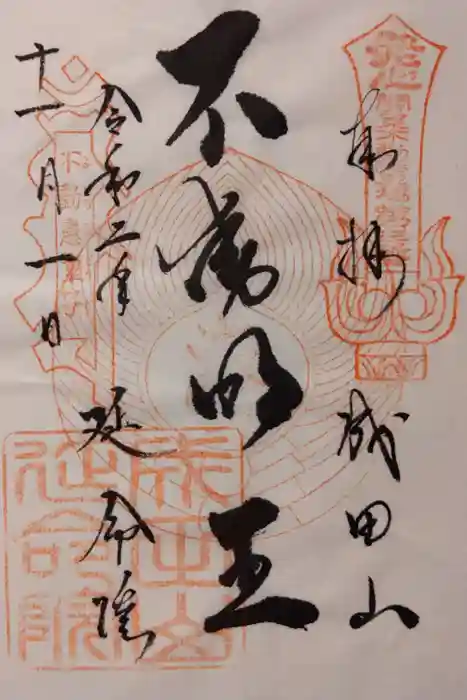 奉拝 成田山
不動明王
令和二年
十一月一日
延命院
成田山
延命院